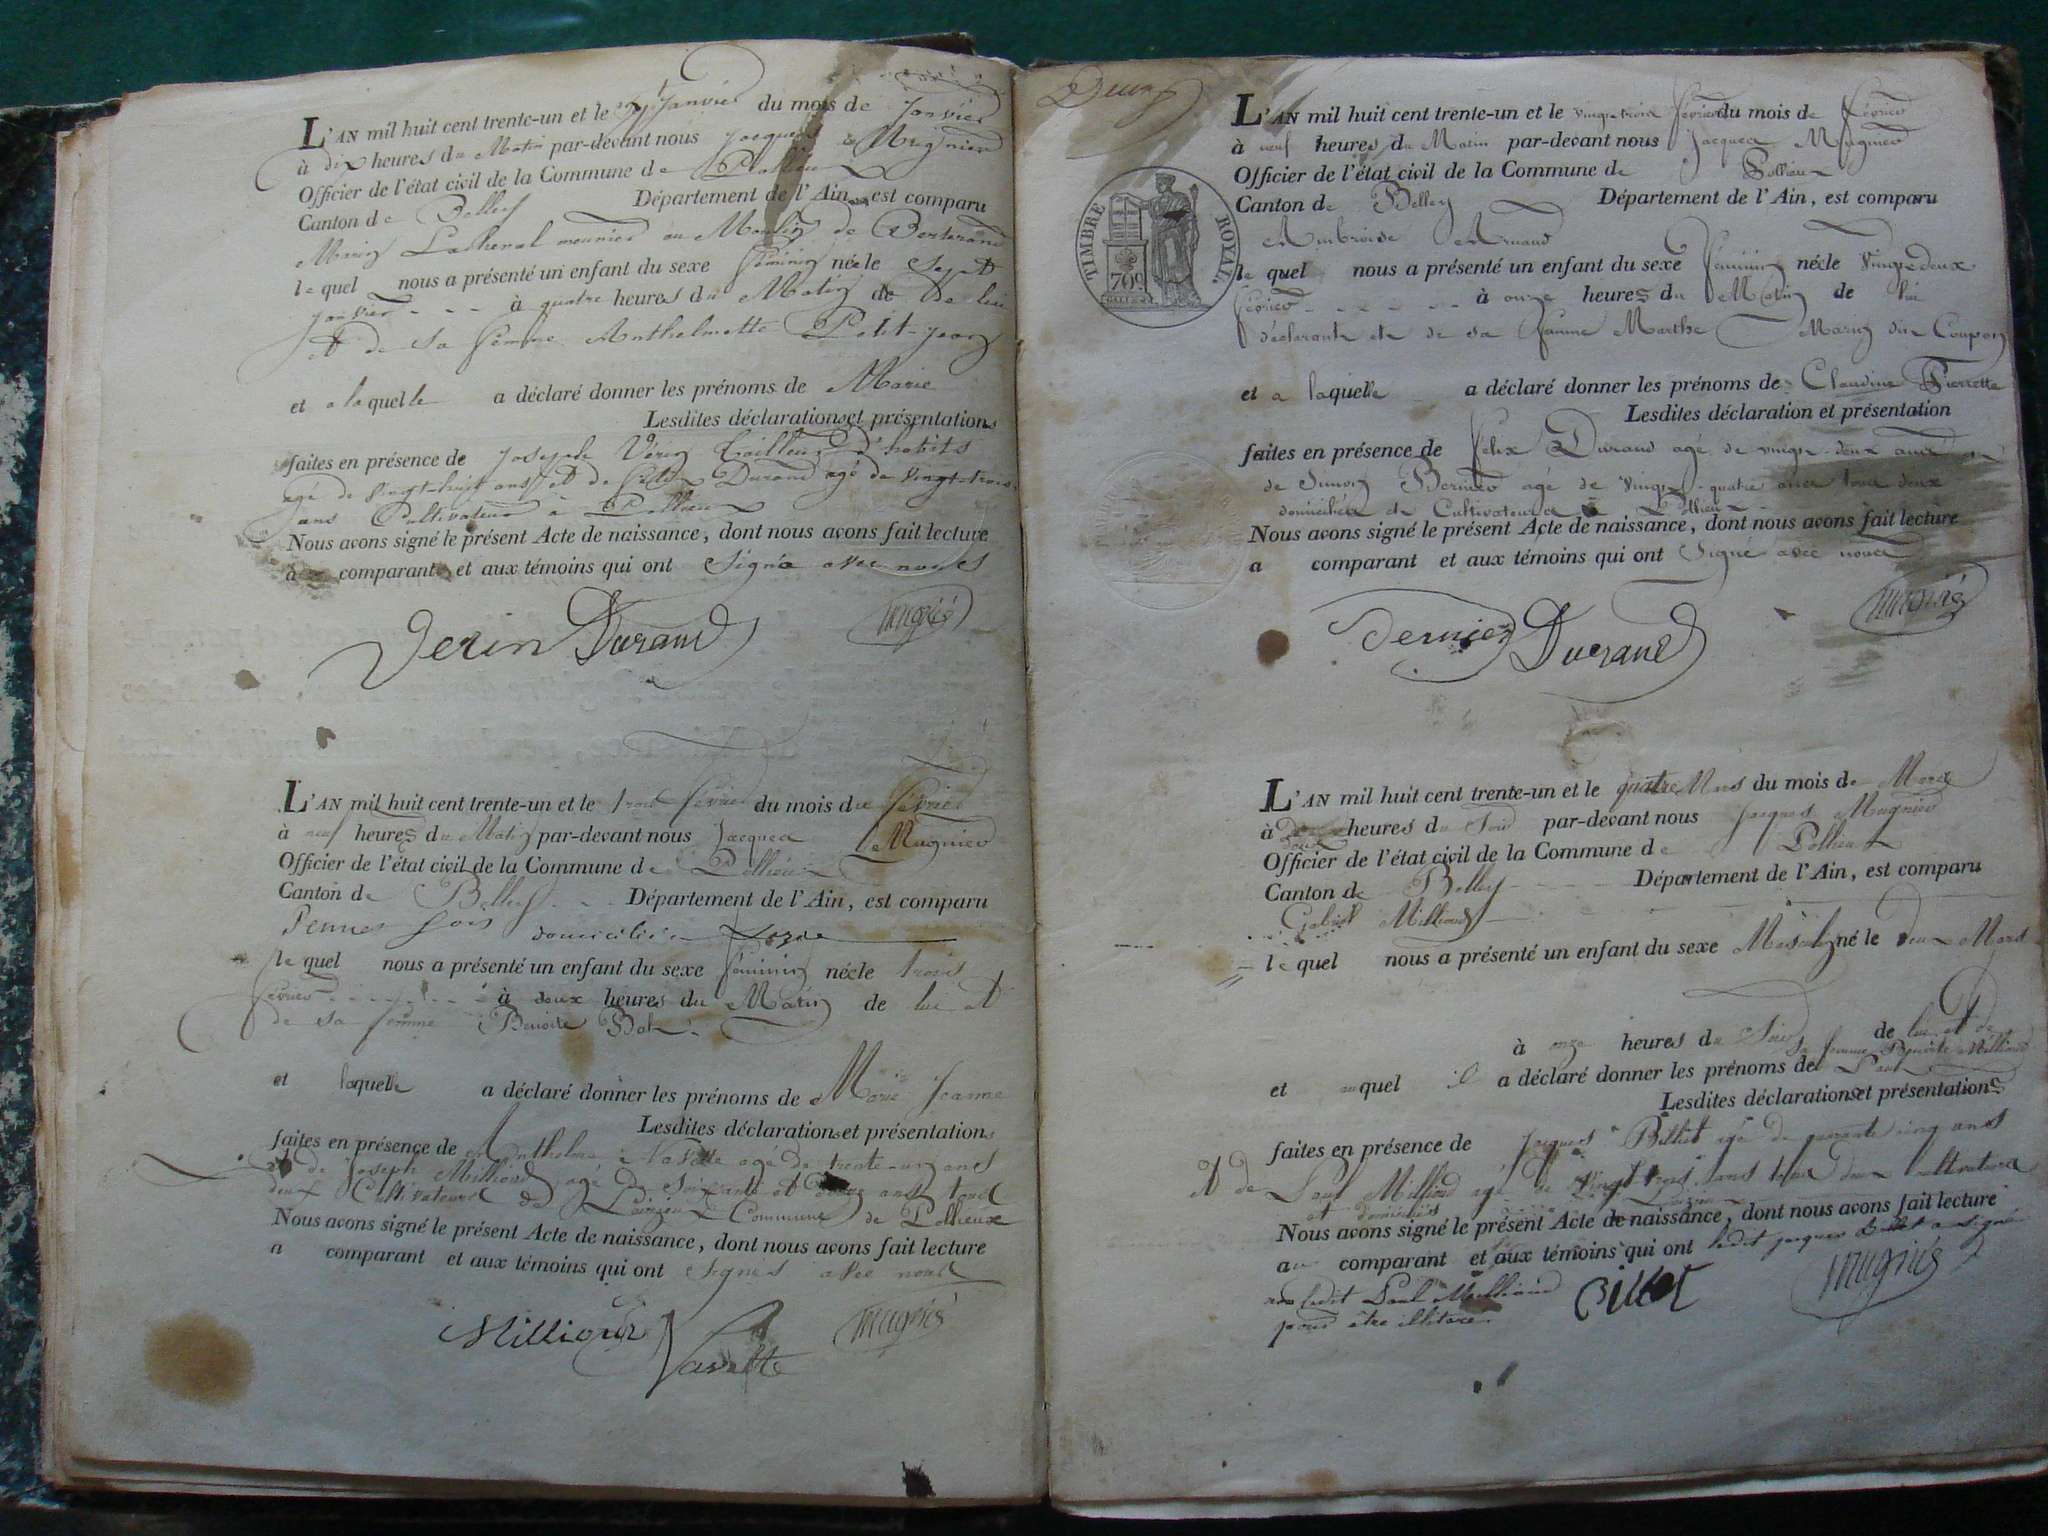 L'AN mil huit cent trente-un et le Janvier du mois de Janvier
à dix heures du Matin par-devant nous Jacques Mugnier
Officier de l'état civil de la Commune de Pollieu
Canton de Belley Département de l'Ain, est comparu
Marin Lacheval meunier au Moulin de
le quel nous a présenté un enfant du sexe féminin née le Sept
Janvier à quatre heures du Matin de De lui
et de sa femme Anthelmette Petit-Jean
et a laquelle a déclaré donner les prénoms de Marie
Lesdites déclarations et présentations
faites en présence de Joseph Vérin tailleur d'habits
agé de vingt-huit ans et de Félix Durand agé de vingt-trois
ans Cultivateur à Pollieu
Nous avons signé le présent Acte de naissance, dont nous avons fait lecture
à comparant et aux témoins qui ont Signé avec nous
Verin Durand Mugnié
L'AN mil huit cent trente-un et le trois février du mois de février
à neuf heures du Matin par-devant nous Jacques Mugnier
Officier de l'état civil de la Commune de Pollieu
Canton de Belley Département de l'Ain, est comparu
domicilié
le quel nous a présenté un enfant du sexe féminin née le trois
février à deux heures du Matin de lui et
de sa femme Benoite
et laquelle a déclaré donner les prénoms de Marie Jeanne
Lesdites déclarations et présentations
faites en présence de Anthelme Navette agé de trente-un ans
et de Joseph Milliond agé de soixante et ans tous
deux Cultivateurs Commune de Pollieux
Nous avons signé le présent Acte de naissance, dont nous avons fait lecture
a comparant et aux témoins qui ont signés avec nous
Milliond Navette Mugnié
TIMBRE ROYAL
L'AN mil huit cent trente-un et le vingt trois février du mois de février
à neuf heures du Matin par-devant nous Jacques Mugnier
Officier de l'état civil de la Commune de Pollieu
Canton de Belley Département de l'Ain, est comparu
Ambroise Arnaud
le quel nous a présenté un enfant du sexe féminin née le vingt deux
février à onze heures du Matin de lui
déclarant et de sa femme Marthe Marin dite Coupon
et a laquelle a déclaré donner les prénoms de Claudine Pierrette
Lesdites déclaration et présentation
faites en présence de Félix Durand agé de vingt deux ans
de Simon Bernier agé de vingt-quatre ans tous deux
domiciliés et Cultivateurs à Pollieu
Nous avons signé le présent Acte de naissance, dont nous avons fait lecture
a comparant et aux témoins qui ont Signé avec nous
Bernier Durand Mugnié
L'AN mil huit cent trente-un et le quatre Mars du mois de Mars
à heures du Soir par-devant nous Jacques Mugnier
Officier de l'état civil de la Commune de Pollieu
Canton de Belley Département de l'Ain, est comparu
Gabriel Milliond
le quel nous a présenté un enfant du sexe Masculin né le deux Mars
à onze heures du Soir de lui et de
sa femme Benoite Milliond
et auquel il a déclaré donner les prénoms de Paul
Lesdites déclarations et présentations
faites en présence de Jacques Billiet agé de cinq ans
et de Paul Milliond agé de vingt trois ans tous deux cultivateurs
et domiciliés
Nous avons signé le présent Acte de naissance, dont nous avons fait lecture
au comparant et aux témoins qui ont ledit Jacques Billet a signé
non ledit Paul Milliond
pour être illitéré
Billet Mugnié